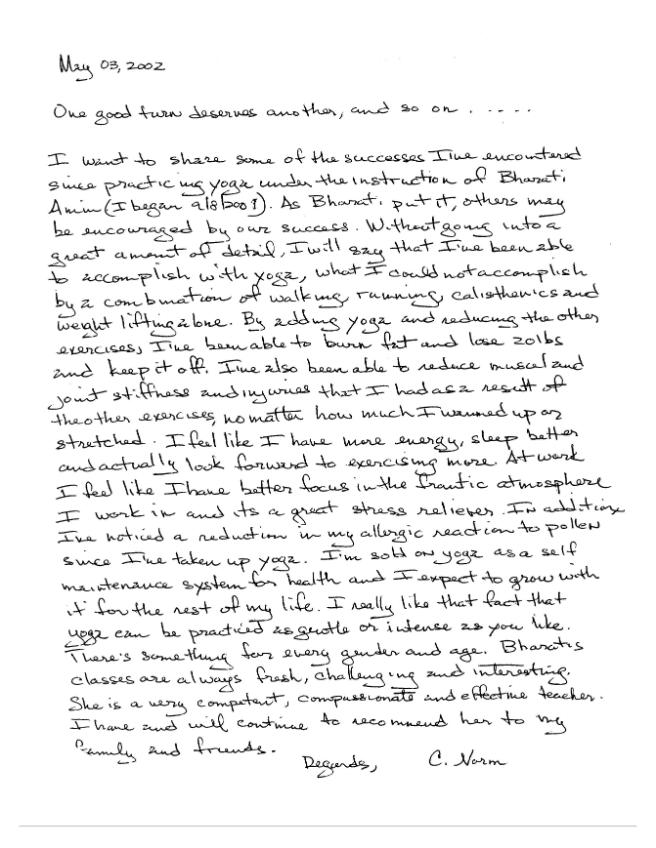 May 03, 2002
One good turn deserves another, and so on . . . . .
I want to share some of the successes I've encountered
since practicing yoga under the instruction of Bharati
Amin (I began 9/8/2001). As Bharati put it, others may
be encouraged by our success. Without going into a
great amount of detail, I will say that I've been able
to accomplish with yoga, what I could not accomplish
by a combination of walking, running, calisthenics and
weight lifting alone. By adding yoga and reducing the other
exercises, I've been able to burn fat and lose 20lbs
and keep it off. I've also been able to reduce muscel and
joint stiffness and injuries that I had as a result of
the other exercises, no matter how much I warmed up or
stretched. I feel like I have more energy, sleep better
and actually look forward to exercising more. At work
I feel like I have better focus in the frantic atmosphere
I work in and its a great stress reliever. In addition
I've noticed a reduction in my allergic reaction to pollen
since I've taken up yoga. I'm sold on yoga as a self
maintenance system for health and I expect to grow with
it for the rest of my life. I really like that fact that
yoga can be practiced as gentle or intense as you like.
There's something for every gender and age. Bharatis
classes are always fresh, challenging and interesting.
She is a very competent, compassionate and effective teacher.
I have and will continue to recommend her to my
family and friends.
Regards, C. Norm